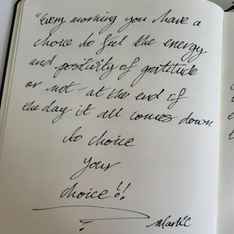 "Every morning you have a
choice to feel the energy
and positivity of gratitude
or not - at the end of
the day it all comes down
to choice
Your
choice!!